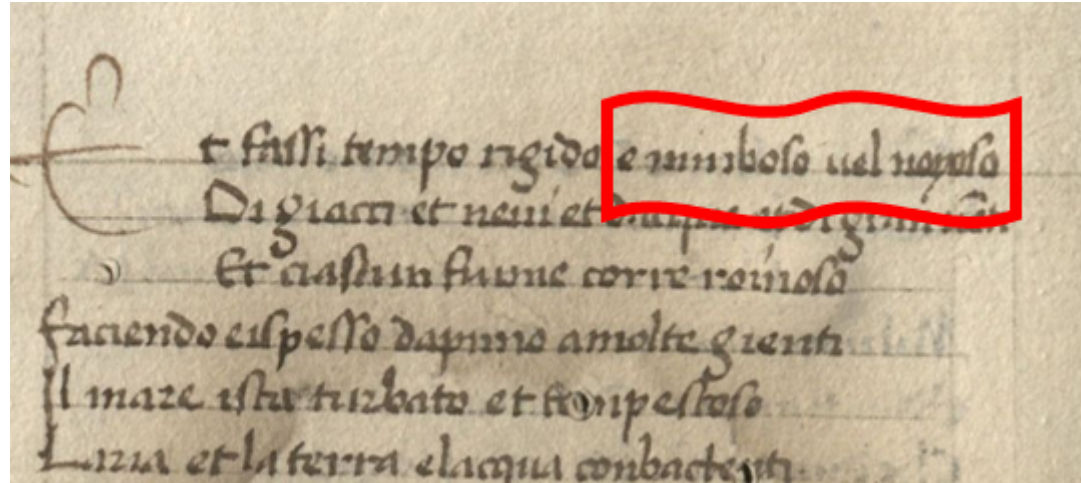 Et fassi tempo rigido e nimboso uel noyoso
Di giacci et neui et dacque et di gran uenti
Et ciascun fiume corre roinoso
Faciendo eispesso dapnno amolte gienti
Il mare ista turbato et tempestoso
Laria et la terra elacqua conbactenti